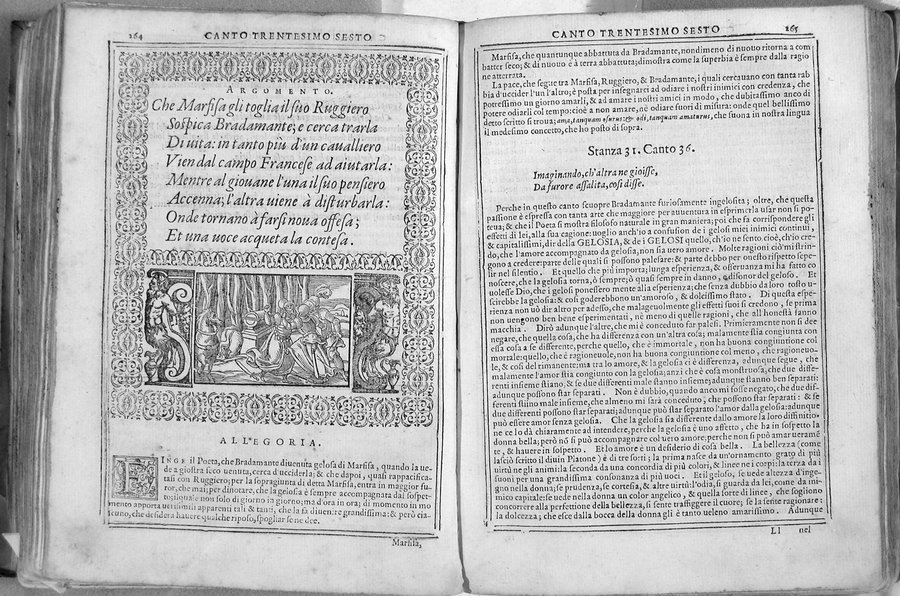 264
CANTO TRENTESIMO SESTO
ARGOMENTO.
Che Marfisa gli toglia il suo Ruggiero
Sospica Bradamante; e cerca trarla
Di uita: in tanto piu d'un caualliero
Vien dal campo Francese ad aiutarla:
Mentre al giouane l'una il suo pensiero
Accenna; l'altra uiene à disturbarla:
Onde tornano à farsi noua offesa;
Et una uoce acqueta la contesa.
ALLEGORIA.
FINGE il Poeta, che Bradamante diuenuta gelosa di Marfisa, quando la ue-
de a giostra seco uenuta, cerca d'ucciderla; & che dapoi, quasi rappacifica-
tasi con Ruggiero; per la sopragiunta di detta Marfisa, entra in maggior fu-
ror, che mai; per dinotare, che la gelosia è sempre accompagnata dal sospet-
to; il quale non solo di giorno in giorno; ma d'ora in ora; di momento in mo
mento apporta uerisimili apparenti tali & tanti, che la fa diuenire grandissima: & però cia-
scuno, che desidera hauere qualche riposo, spogliar se ne dee.
Marfisa,
CANTO TRENTESIMO SESTO
265
Marfisa, che quantunque abbattuta da Bradamante, nondimeno di nuouo ritorna a com
batter seco; & di nuouo è in terra abbattuta; dimostra come la superbia è sempre dalla ragio
ne atterrata.
La pace, che segue tra Marfisa, Ruggiero, & Bradamante, i quali cercauano con tanta rab
bia d'uccider l'un l'altro; è posta per insegnarci ad odiare i nostri inimici con credenza, che
potressimo un giorno amarli, & ad amare i nostri amici in modo, che dubitassimo anco di
potere odiarli col tempo: cioè a non amare, nè odiare fuori di misura: onde quel bellissimo
detto scritto si troua; ama, tanquam osurus: & odi, tanquam amaturus, che suona in nostra lingua
il medesimo concetto, che ho posto di sopra.
Stanza 31. Canto 36.
Imaginando, ch'altra ne gioisse,
Da furore assalita, così disse.
Perche in questo canto scuopre Bradamante furiosamente ingelosita; oltre, che questa
passione è espressa con tanta arte che maggiore per auuentura in esprimerla usar non si po-
teua; & che il Poeta s'è mostra filosofo naturale in gran maniera; poi che fa corrispondere gli
effetti di lei, alla sua cagione: uoglio anch'io a confusion de i gelosi miei inimici continui,
& capitalissimi, dir della GELOSIA, & de i GELOSI quello, ch'io ne sento, cioè, ch'io cre-
do, che l'amore accompagnato da gelosia, non sia uero amore. Molte ragioni ciò mi strin-
gono a credere: parte delle quali si possono palesare: & parte debbo per questo rispetto sepe-
lir nel silentio. Et quello che più importa; lunga esperienza, & osseruanza mi ha fatto co
noscere, che la gelosia torna, ò sempre; ò quasi sempre in danno, & disonor del geloso. Et
uolesse Dio, che i gelosi ponessero mente alla esperienza; che senza dubbio da loro tosto u-
scirebbe la gelosia: & così goderebbono un'amoroso, & dolcissimo stato. Di questa espe-
rienza non uò dir altro per adesso, che malageuolmente gli effetti suoi si credono, se prima
non uengono ben bene esperimentati, nè meno di quelle ragioni, che all'honestà fanno
macchia. Dirò adunque l'altre, che mi è conceduto far palesi. Primieramente non si dee
negare, che quella cosa, che ha differenza con un'altra cosa; malamente stia congiunta con
essa cosa a se differente, perche quello, che è immortale, non ha buona congiuntione col
mortale: quello, che è ragioneuole, non ha buona congiuntione col meno, che ragioneuo-
le, & così del rimanente: ma tra lo amore, & la gelosia ci è differenza, adunque segue, che
malamente l'amor stia congiunto con la gelosia; anzi che è cosa mostruosa, che due diffe-
renti insieme stiano, & se due differenti male stanno insieme; adunque stanno ben separati:
adunque possono star separati. Non è dubbio, quando anco mi fosse negato, che due dif-
ferenti stiino male insieme, che almeno mi sarà conceduto, che possono star separati: & se
due differenti possono star separati; adunque può star separato l'amor dalla gelosia: adunque
può essere amor senza gelosia. Che la gelosia sia differente dallo amore la loro diffinitio-
ne ce lo dà chiaramente ad intendere, perche la gelosia è uno affetto, che ha in sospetto la
donna bella; però nõ si può accompagnare col uero amore; perche non si può amar ueramẽ
te, & hauere in sospetto. Et lo amore è un desiderio di cosa bella. La bellezza (come
lasciò scritto il diuin Platone) è di tre sorti; la prima nasce da un'ornamento grato di più
uirtù ne gli animi: la seconda da una concordia di più colori, & linee ne i corpi: la terza da i
suoni per una grandissima consonanza di più uoci. Et il geloso, se uede altezza d'inge-
gno nella donna; se prudenza, se cortesia, & altre uirtù: l'odia, si guarda da lei, come da ini-
mico capitale: se uede nella donna un color angelico, & quella sorte di linee, che sogliono
concorrere alla perfettione della bellezza, si sente trafiggere il cuore; se la sente ragionare:
la dolcezza; che esce dalla bocca della donna gli è tanto ueleno amarissimo. Adunque
Ll
nel